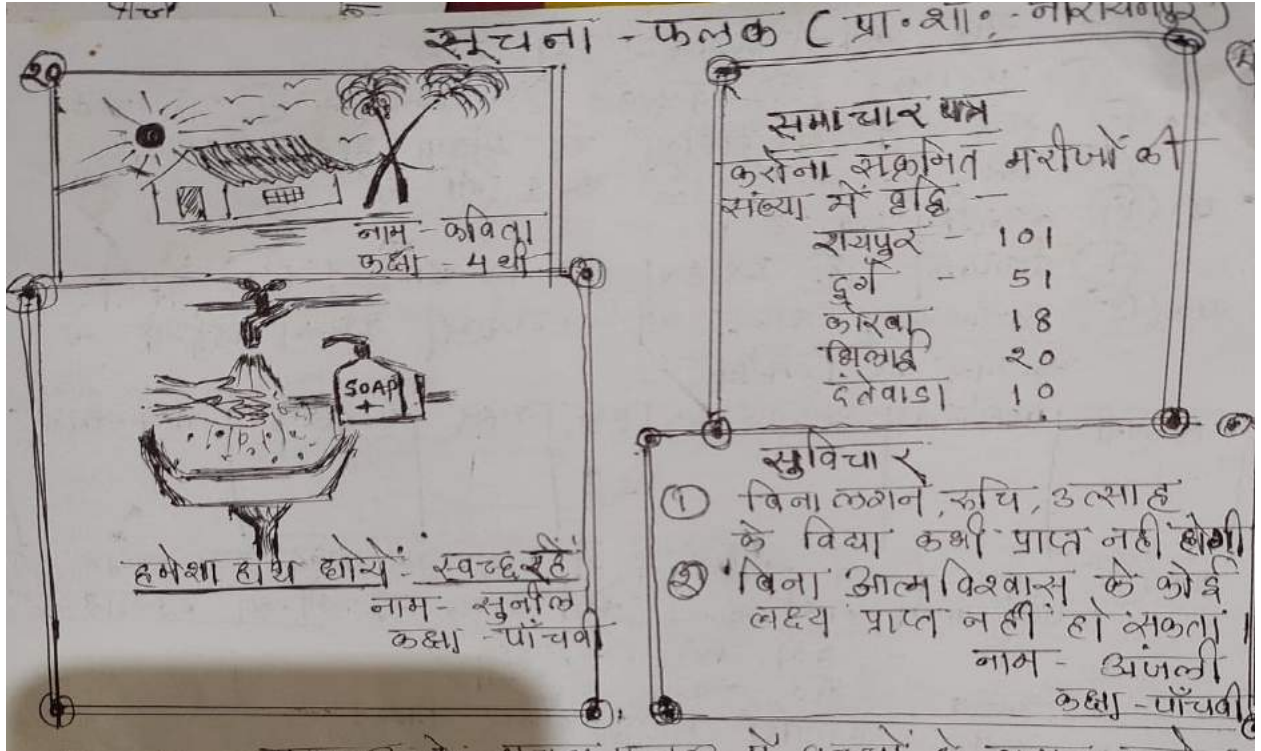 सूचना - फलक ( प्रा. शा. - नारायणपुर )
नाम - कविता
कक्षा - 4 थी
SOAP
+
हमेशा हाथ धोयें - स्वच्छ रहें
नाम - सुनील
कक्षा - पाँचवी
समाचार पत्र
करोना संक्रमित मरीजों की
संख्या में वृद्धि -
रायपुर - 101
दुर्ग - 51
कोरबा 18
भिलाई २०
दंतेवाडा 10
सुविचार
① बिना लगन, रुचि, उत्साह
के विद्या कभी प्राप्त नही होगी
② बिना आत्मविश्वास के कोई
लक्ष्य प्राप्त नहीं हो सकता।
नाम - अंजली
कक्षा - पाँचवी